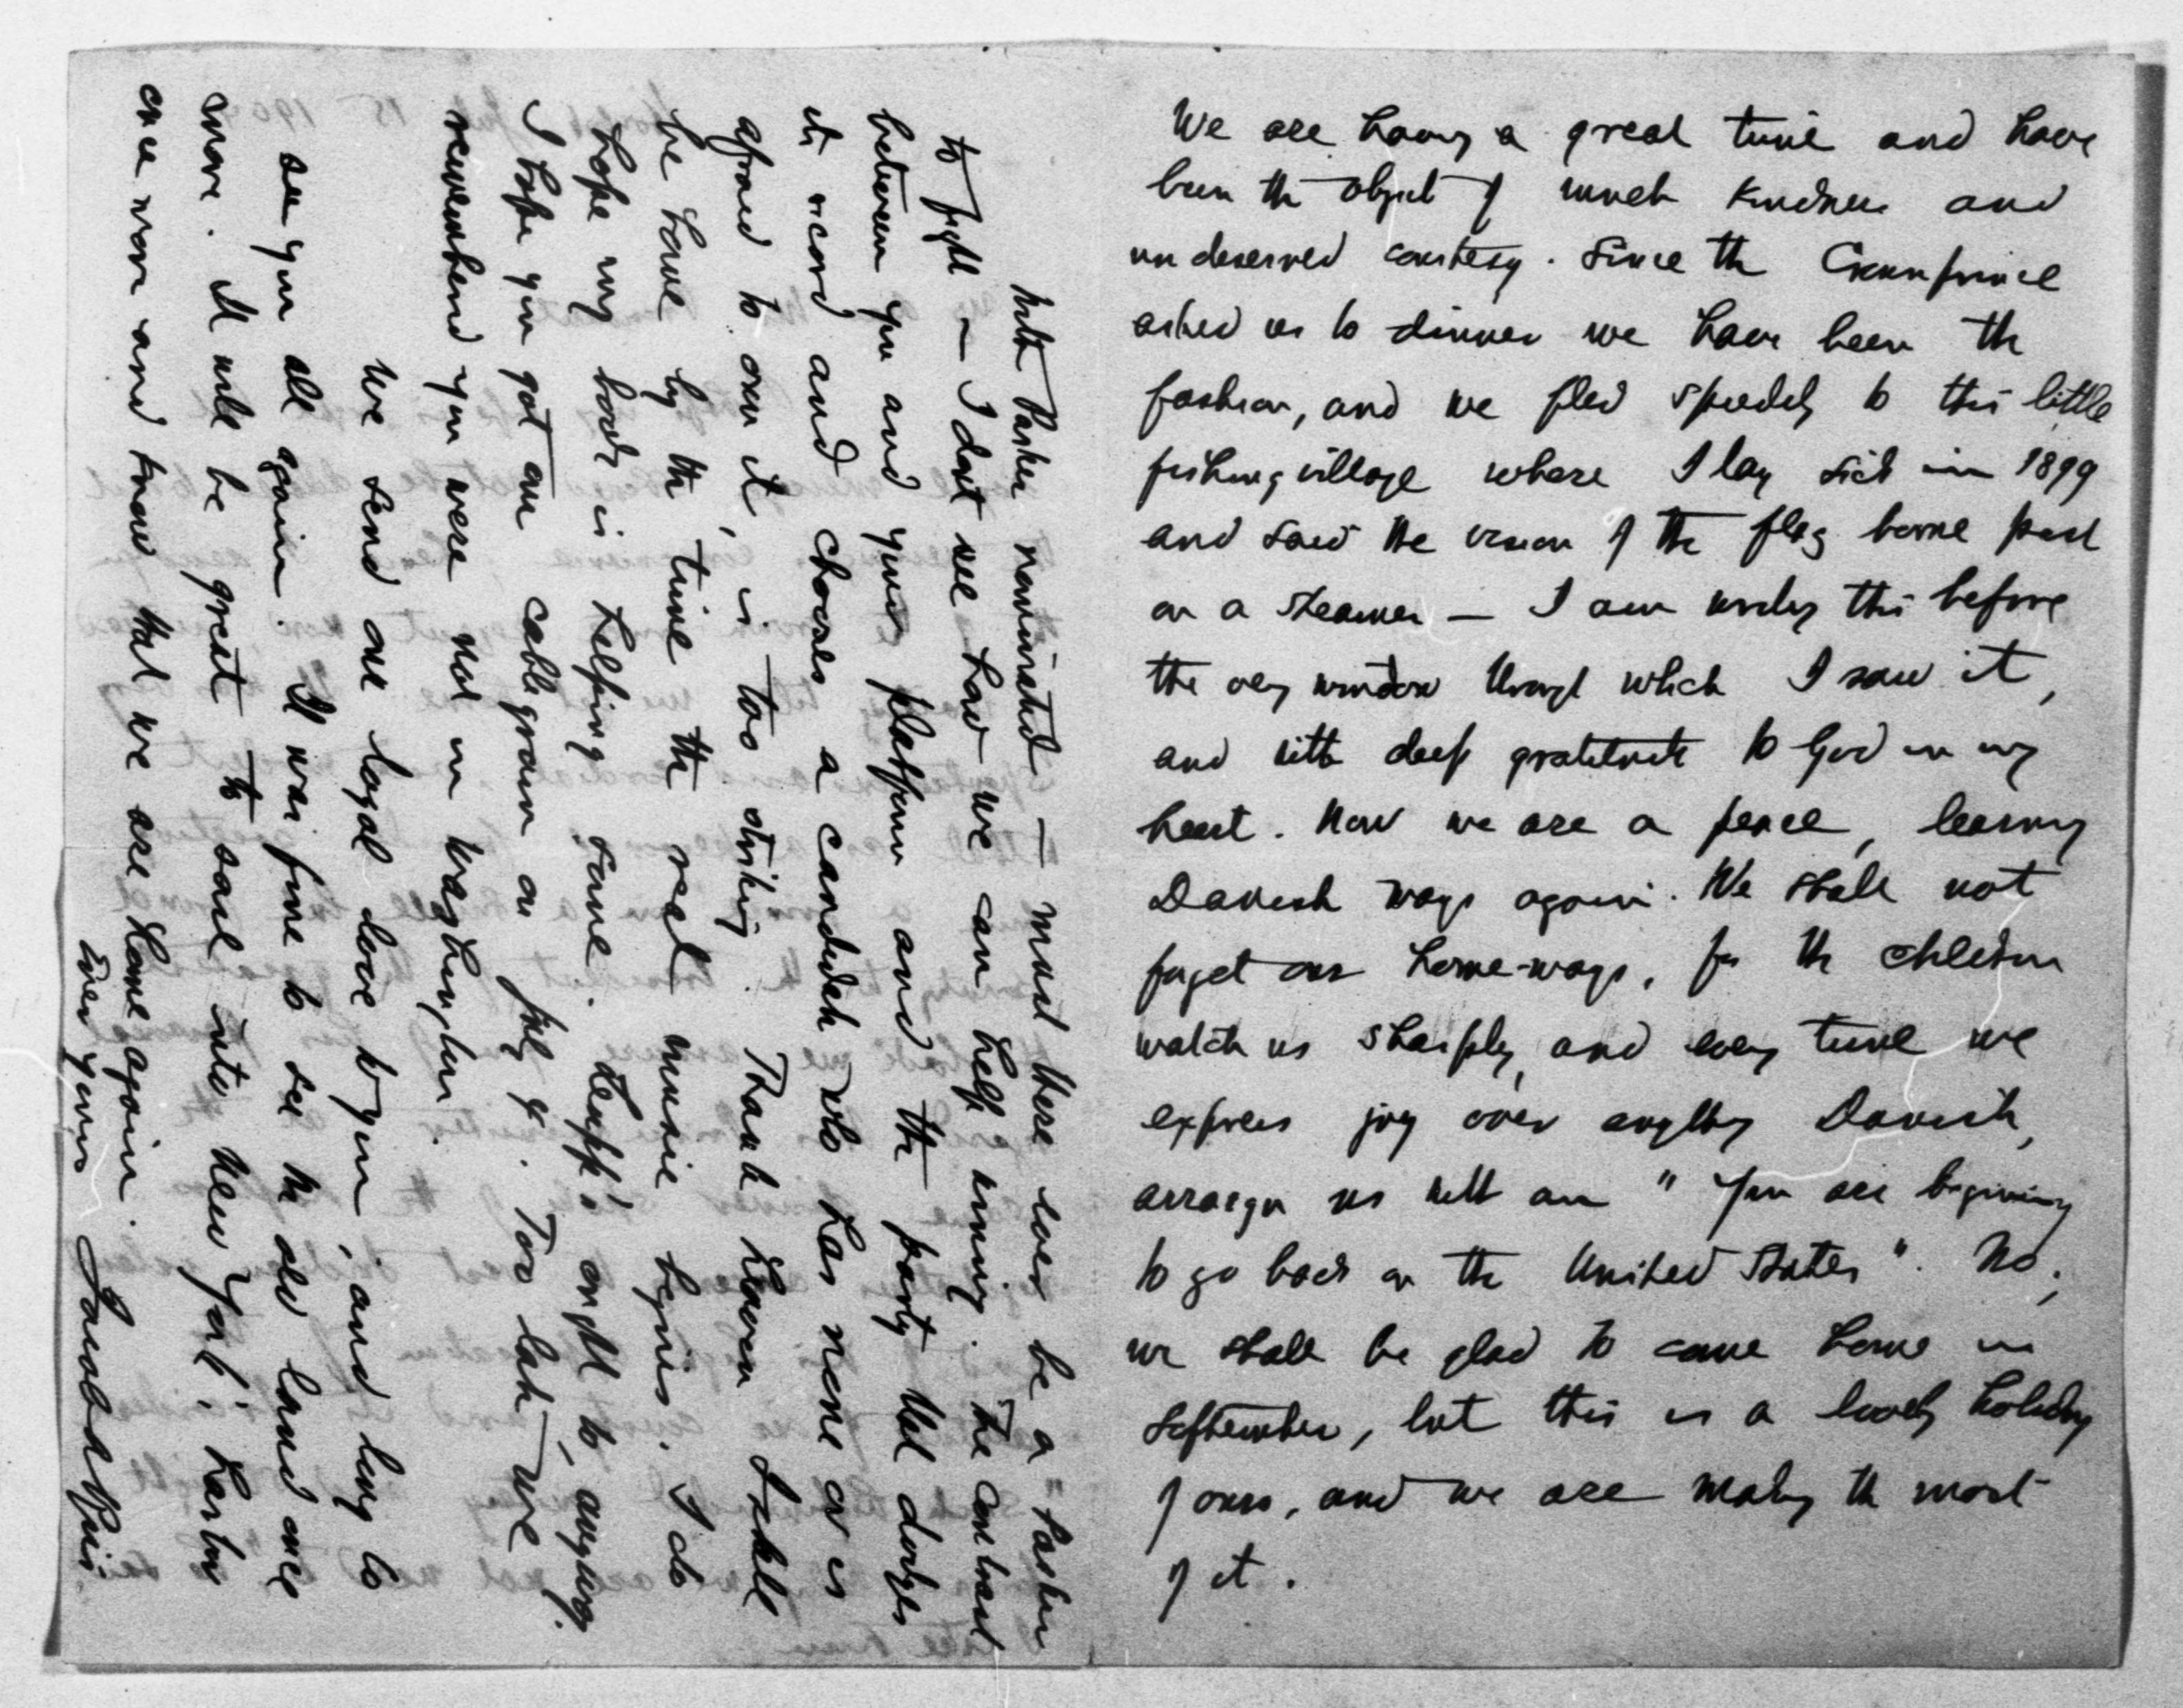 We are having a great time and have
been the object of much kindness and
undeserved courtesy. Since the Crownprince
asked us to dinner we have been the
fashion, and we fled speedily to this little
fishing village where I lay sick in 1899
and saw the vision of the flag borne past
on a steamer — I am writing this before
the very window through which I saw it,
and with deep gratitude to God in my
heart. Now we are a peace, learning
Danish ways again. We shall not
forget our home-ways, for the children
watch us sharply, and every time we
express joy over anything Danish,
arraign us with an "You are beginning
to go back on the United States". No,
we shall be glad to come home in
September, but this is a lovely holiday
of ours, and we are making the most
of it.
With Parker nominated — must there ever be a "Parker
to fight — I dont see how we can help winning. The contrast
between you and your platform and the party that dodges
its record and chooses a candidate who has none or is
afraid to own it, is too striking. Thank Heaven I shall
be home by the time the real music begins. I do
hope my book is helping some. Leupp's ought to, anyway.
I hope you got our cablegram on July 4. Too late we
remembered you were not in Washington.
We send our loyal love to you, and long to
see you all again. It was fine to see the old land once
more. It will be great to sail into New York, harbor
once more and know that we are home again.
Ever yours Jacob A Riis.